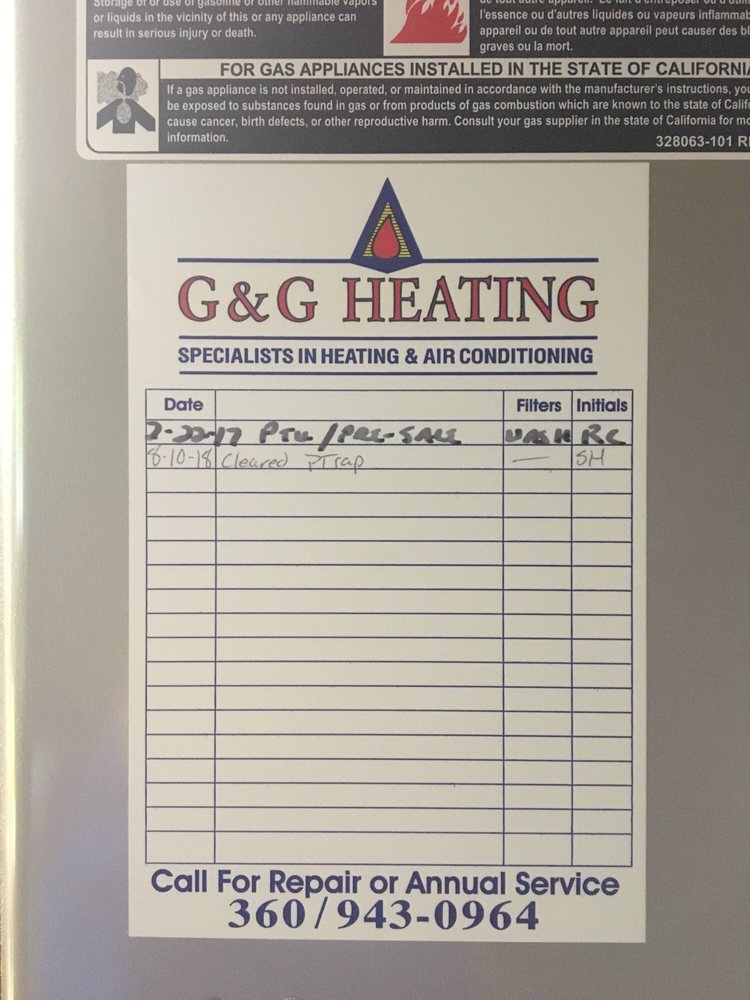 Storage of or use of gasoline or other flammable vapors
or liquids in the vicinity of this or any appliance can
result in serious injury or death.
l'essence ou d'autres liquides ou vapeurs inflammab
appareil ou de tout autre appareil peut causer des bl
graves ou la mort.
FOR GAS APPLIANCES INSTALLED IN THE STATE OF CALIFORNIA
If a gas appliance is not installed, operated, or maintained in accordance with the manufacturer's instructions, you
be exposed to substances found in gas or from products of gas combustion which are known to the state of Calif
cause cancer, birth defects, or other reproductive harm. Consult your gas supplier in the state of California for mo
information.
328063-101 R
G&G HEATING
SPECIALISTS IN HEATING & AIR CONDITIONING
Date Filters Initials
PTU/PRE-SALE WASH RC
8-10-18 Cleared PTrap — SH
Call For Repair or Annual Service
360/943-0964